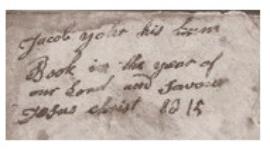 Jacob yoho his
Book in the year of
our Lord and Savour
Jesus christ 1815